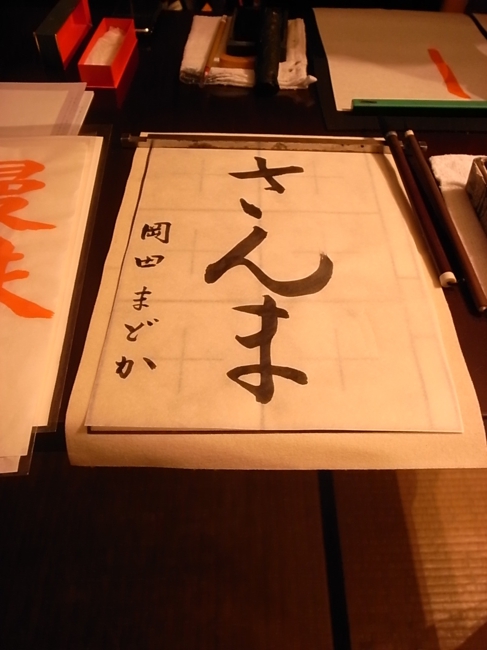 さんま
岡田まどか